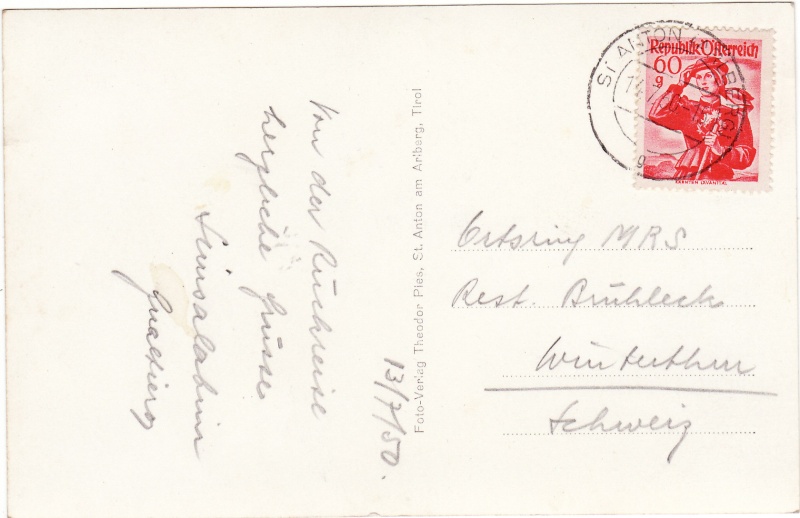 Von der Rückreise
herzliche Grüsse
Simsalabim
13/7/50.
Foto-Verlag Theodor Pies, St. Anton am Arlberg, Tirol
ST. ANTON
Republik Österreich
60
g
KÄRNTEN LAVANTTAL
Ortsring MRS
Rest. Brühleck
Winterthur
Schweiz